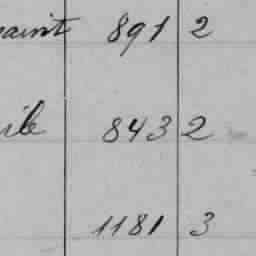 saint 891 2
ile 843 2
1181 3